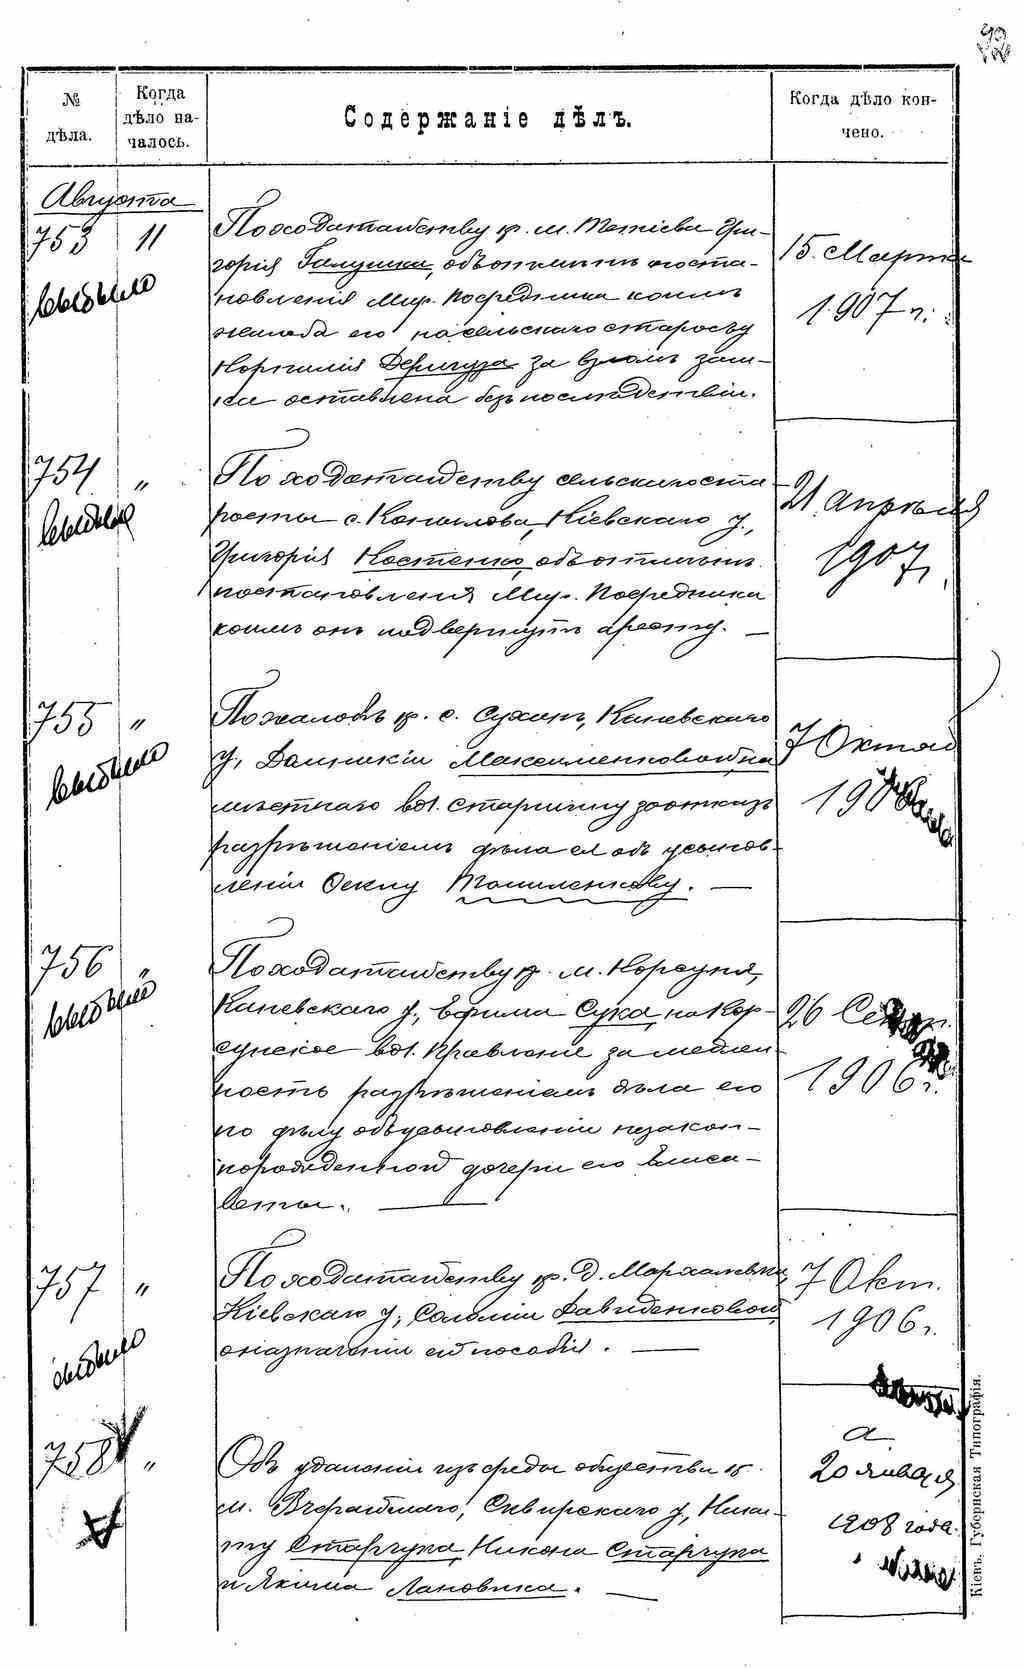 № дѣла.
Когда дѣло на-
чалось.
Содержаніе дѣлъ.
Когда дѣло кон-
чено.
Августа
753 11
По ходатайству кр. м. Тетіева Гри-
горія Галушка, объ отмѣнѣ поста-
новленія Мир. Посредника коимъ
жалоба его на сельскаго старосту
Корнилія за взломъ зам-
ка оставлена безъ послѣдствій.
15 Марта
1907 г.
выбыло
754 "
По ходатайству сельскаго ста-
росты с. Кіевскаго у.,
Григорія Костенко, объ отмѣнѣ
постановленія Мир. Посредника
коимъ онъ подвергнутъ аресту. —
21 апрѣля
1907 г.
выбыло
755 "
По жалобѣ кр. с. Сухинъ, Каневскаго
у, Домникіи Максименковой, на
мѣстнаго вол. старшину за отказъ
разрѣшеніемъ дѣла ея объ усынов-
леніи Оекпу Томиленкову. —
7 Октяб
выбыло
756 "
По ходатайству кр. м. Корсуня,
Каневскаго у., Ефима Сука, на Кор-
сунское вол. Правленіе за медлен-
ность разрѣшеніемъ дѣла его
по дѣлу объ усыновленіи незакон-
норожденной дочери его Елиса-
веты. —
26
1906 г.
выбыло
757 "
По ходатайству кр. д. Мархалевки,
Кіевскаго у, Соломіи Давиденковой
о назначеніи ей пособія. —
7 Окт.
1906 г.
выбыло
758 "
Объ удаленіи изъ среды общества кр.
м. Вчерайшаго, Сквирскаго у, Ники-
ту Старчука, Никона Старчука
и Якима Лановика. —
20 января
1908 года.
Кіевъ. Губернская Типографія.